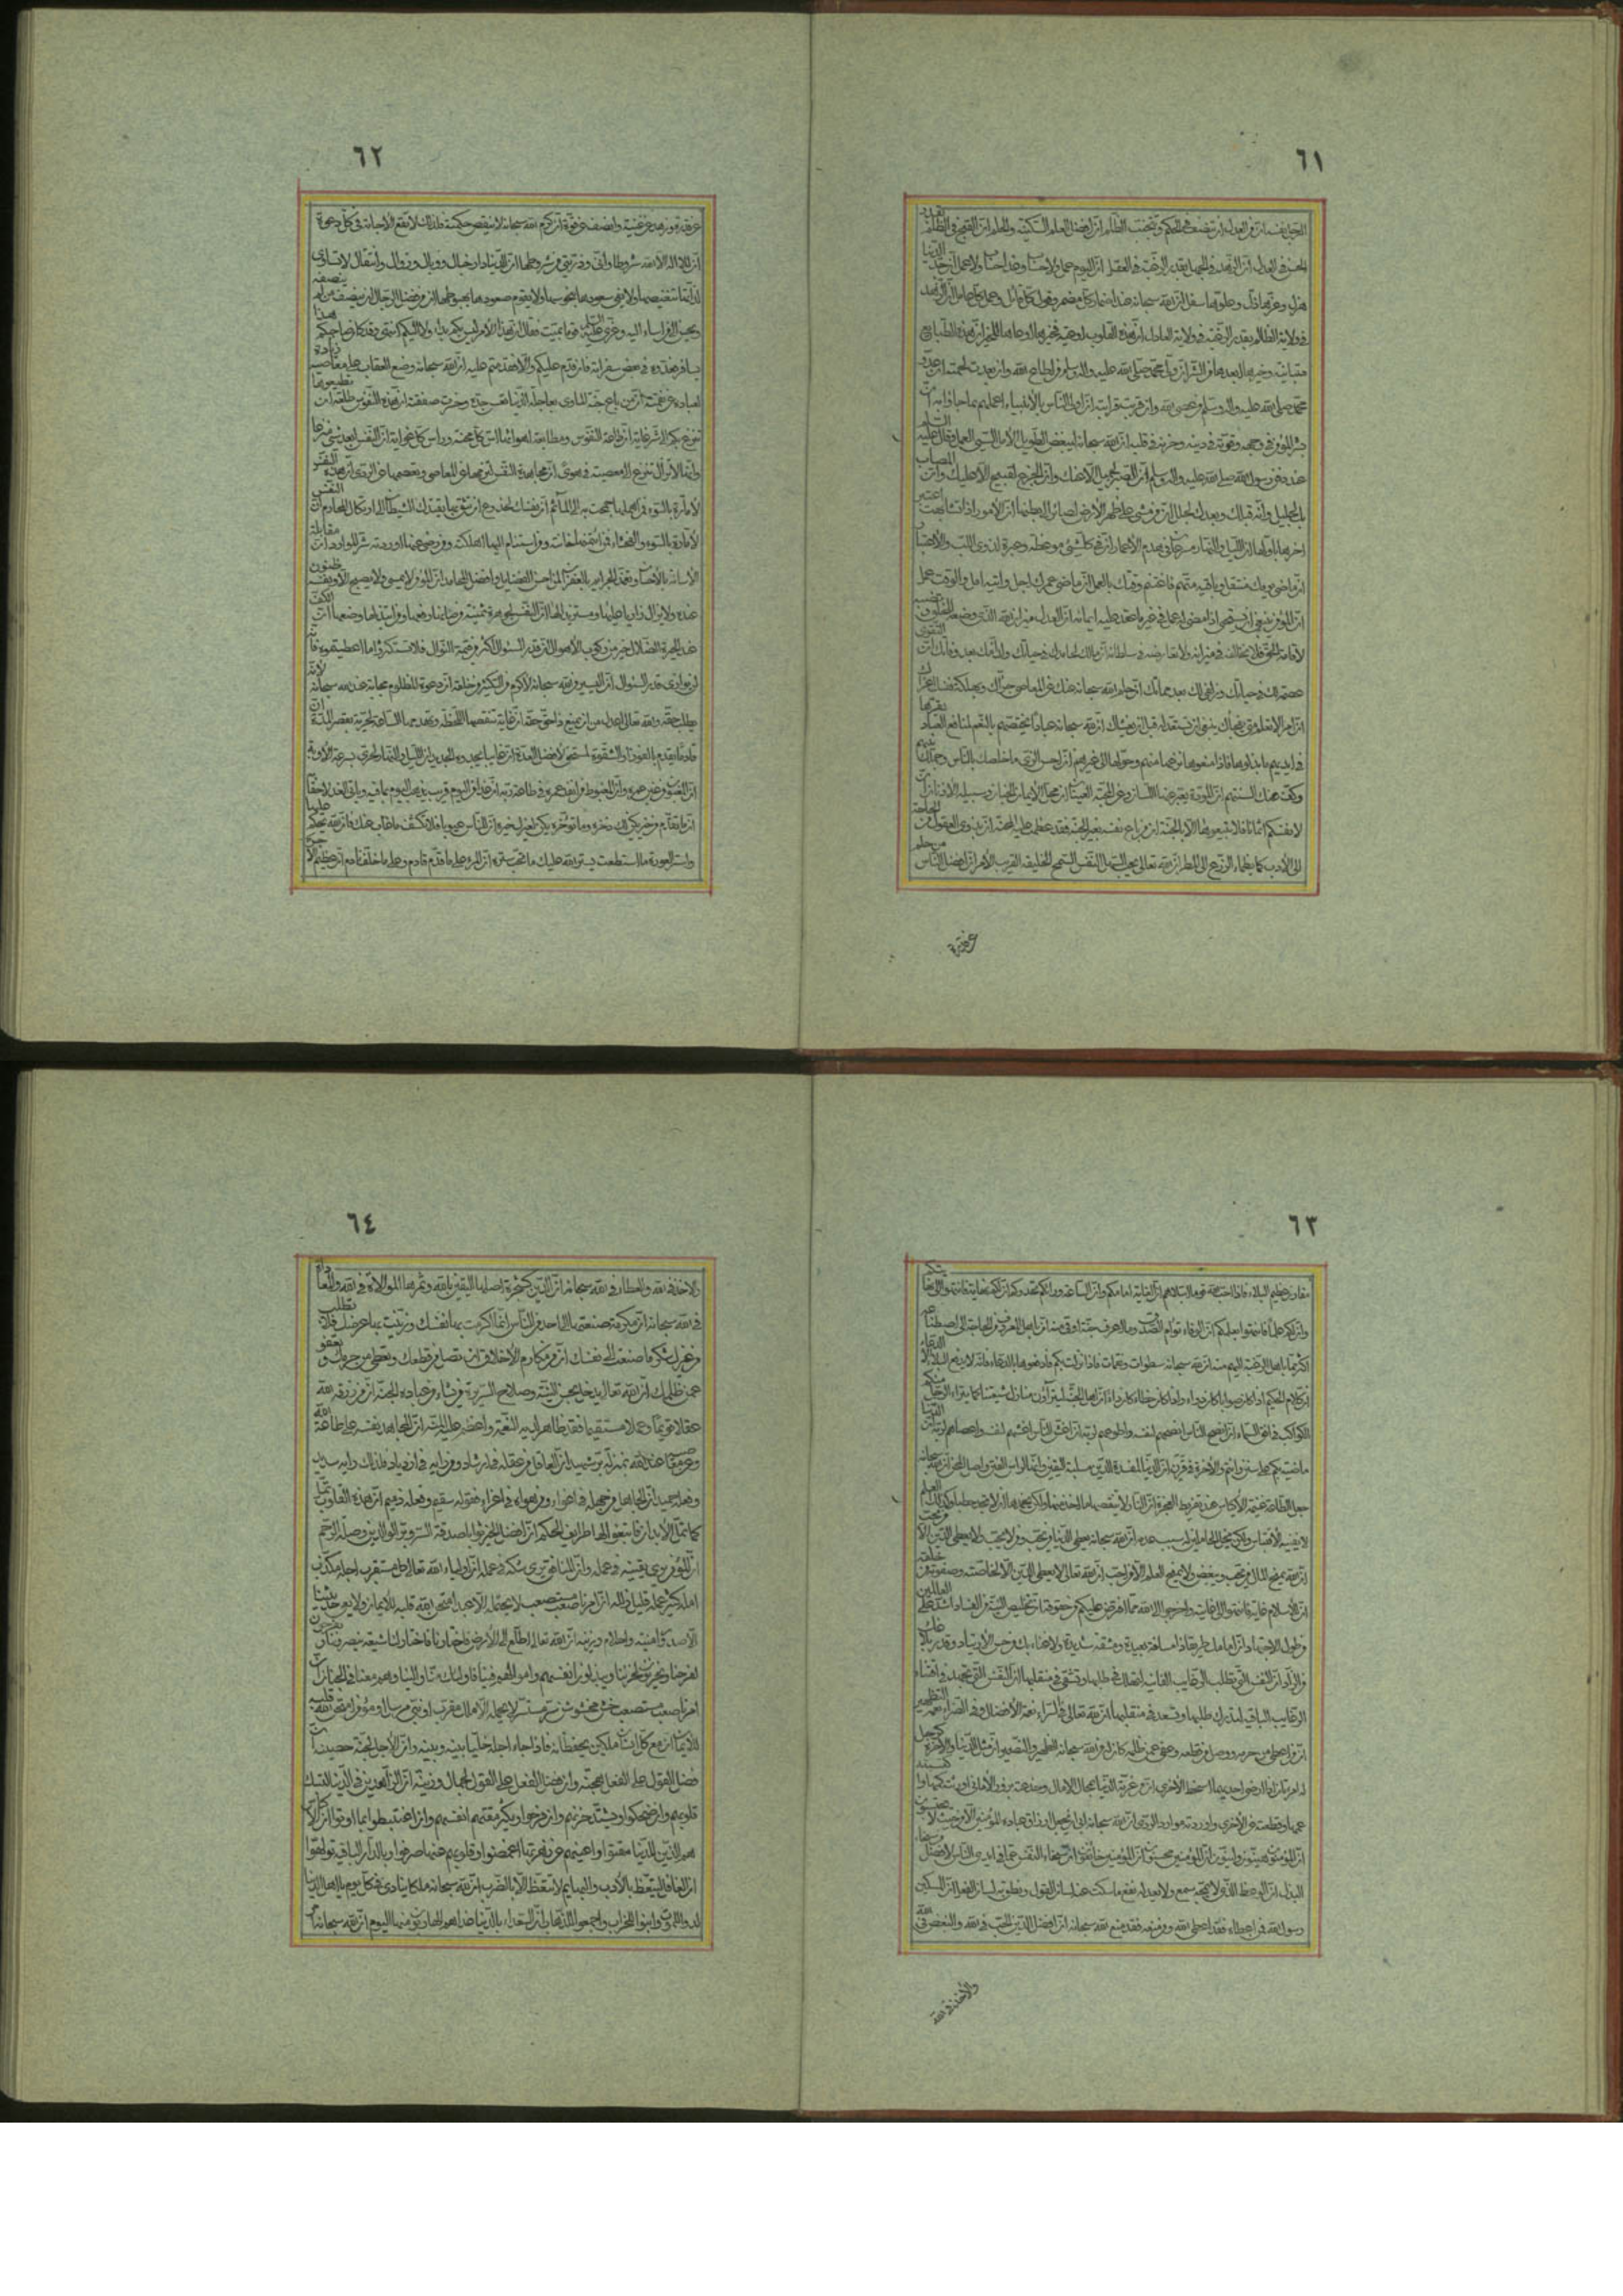 ٦١
النجيل نفسه ان من العدل ان تنصف في الحكم وتجتنب الظلم ان افضل العلم السكينة والحلم ان القبح في الظلم بقدر
الحسن في العدل ان الزهد في الجهل بقدر الرغبة في العقل ان اليوم عمل ولا حساب وغدا حساب ولا عمل ان جد الدنيا
هزل وعزها ذل وعلوها سفل ان الله سبحانه عند اضمار كل مضمر وقول كل قائل وعمل كل عامل ان الزهد
في ولاية الظالم بقدر الرغبة في ولاية العادل ان هذه القلوب اوعية فخيرها اوعاها للخير ان هذه الطبايع
متباينة وخيرها ابعدها من الشر ان ولي محمد صلى الله عليه واله وسلم من اطاع الله وان بعدت لحمته ان عدو
محمد صلى الله عليه واله وسلم من عصى الله وان قربت قرابته ان اولى الناس بالأنبياء اعملهم بما جاؤا به ان
بشر المؤمن في وجهه وقوته في دينه وحزنه في قلبه ان الله سبحانه ليبغض الطويل الأمل السيئ العمل وقال عليه السلم
عند دفن رسول الله صلى الله عليه واله وسلم ان الصبر لجميل الا عنك وان الجزع لقبيح الا عليك وان المصاب
بك لجليل وانه قبلك وبعدك لجلل ان من مشى على ظهر الأرض لصائر الى بطنها ان الأمور اذا تشابهت اعتبر
اخرها باولها ان الليل والنهار مسرعان في هدم الأعمار ان في كل شيء موعظة وعبرة لذوي اللب والاعتبار
ان ماضي يومك منتقل وباقيه متهم فاغتنم وقتك بالعمل ان ماضي عمرك اجل واتيه امل والوقت عمل
ان العدل ميزان الله الذي وضعه للخلق
لاقامة الحق فلا تخالفه في ميزانه ولا تعارضه في سلطانه ان مالك لحامدك في حياتك ولذامك بعد وفاتك ان التقوى
عصمة لك في حياتك وزلفى لك بعد مماتك ان حلم الله سبحانه عنك على المعاصي جرأك وبهلكة نفسك اغراك
ان امرا لا تعلم متى يفجأك ينبغي ان تستعد له قبل ان يغشاك ان لله سبحانه عبادا يختصهم بالنعم لمنافع العباد يقرها
في ايديهم ما بذلوها فاذا منعوها نزعها منهم وحولها الى غيرهم ان احسن الزي ما خلطك بالناس وجملك بينهم
وكف عنك السنتهم ان المودة يعبر عنها اللسان وعن المحبة العينان ان محل الايمان الجنان وسبيله الأذنان ان
لأنفسكم اثمانا فلا تبيعوها الا بالجنة ان من باع نفسه بغير الجنة فقد عظمت عليه المحنة ان بذوي العقول من الحاجة
الى الأدب كما يظمأ الزرع الى المطر ان الله تعالى يحب السهل النفس السمح الخليقة القريب الأمر ان افضل الناس من حلم
عن قدرة
٦٢
عن قدرة وزهد عن غنية وانصف عن قوة ان كرم الله سبحانه لا ينقض حكمته فلذلك لا تقع الاجابة في كل دعوة
ان للا اله الا الله شروطا واني وذريتي من شروطها ان الدنيا دار خبال ووبال وزوال وانتقال لا تساوي
لذاتها تنغيصها ولا يفي سعودها بنحوسها ولا يقوم صعودها بهبوطها ان من فضل الرجل ان ينصف من لم ينصفه
ويحسن الى من اساء اليه وعزى عليه السلم قوما بميت فقال ان هذا الأمر ليس بكم بدأ ولا اليكم انتهى وقد كان صاحبكم هذا
يسافر فعدوه في بعض سفراته فان قدم عليكم والا قدمتم عليه ان الله سبحانه وضع العقاب على معاصيه زيادة
لعباده عن نقمته ان من باع جنة المأوى بعاجلة الدنيا تعس جده وخسرت صفقته ان هذه النفوس طلعة ان تطيعوها
تنزع بكم الى شر غاية ان طاعة النفوس ومطابقة اهوائها اس كل محنة وراس كل غواية ان النفس ابعد شيء منزعا
وانها لا تزال تنزع الى معصية في هوى ان مجاهدة النفس لتزمها عن المعاصي وتعصمها عن الردى ان هذه النفس
لأمارة بالسوء فمن اهملها جمحت به الى المأثم ان نفسك لخدوع ان تثق بها يقتدك الشيطان الى ارتكاب المحارم ان النفس
لأمارة بالسوء والفحشاء فمن ائتمنها خانته ومن استنام اليها اهلكته ومن رضي عنها اوردته شر الموارد ان مقابلة
الأساءة بالأحسان وتغمد الجرايم بالغفران لمن احسن الفضايل وافضل المحامد ان المؤمن لا يمسي ولا يصبح الا ونفسه ظنون
عنده ولا يزال زاريا عليها ومستزيدا لها ان النفس لجوهرة ثمينة من صانها رفعها ومن ابتذلها وضعها ان الكف
عند حيرة الضلال خير من ركوب الأهوال ان قدر السؤال اكثر من قيمة النوال فلا تستكثروا ما اعطيتموه فانه
لن يوازي قدر السؤال ان اليسير من الله سبحانه لأكرم من الكثير من خلقه ان دعوة المظلوم مجابة عند الله سبحانه لأنه
يطلب حقه والله تعالى اعدل من ان يمنع ذا حق حقه ان غاية تنقصها اللحظة وتهدمها الساعة لحرية بقصر المدة ان
قادما يقدم بالفوز او الشقوة لمستحق لأفضل العدة ان غائبا يحدوه الجديدان الليل والنهار لحري بسرعة الأوبة
ان المغبون من غبن عمره وان المغبوط من انفد عمره في طاعة ربه ان غدا من اليوم قريب يذهب اليوم بما فيه وياتي الغد لاحقا
ان ما تقدم من خير يكن لك ذخره وما تؤخره يكن لغيرك خيره ان للناس عيوبا فلا تكشف ما غاب عنك فان الله يحكم عليها
واستر العورة ما استطعت يستر الله عليك ما تحب ستره ان المرء على ما قدم قادم وعلى ما خلف نادم ان عظيم الأجر
٦٣
مقارن عظيم البلاء فاذا احب الله قوما ابتلاهم ان الغاية امامكم وان الساعة ورائكم تحدوكم ان لكم نهاية فانتهوا الى نهايتكم
وان لكم علما فانتهوا بعلمكم ان الوفاء توأم الصدق وما اعرف جنة اوقى منه ان باهل المعروف من الحاجة الى اصطناعه
اكثر مما باهل الرغبة اليهم منه ان لله سبحانه سطوات ونقمات فاذا نزلت بكم فادفعوها بالدعاء فانه لا يدفع البلاء الا الدعاء
ان كلام الحكيم اذا كان صوابا كان دواء واذا كان خطاء كان داء ان اهل الجنة ليتراؤن منازل شيعتنا كما يتراءى الرجل منكم
الكواكب في افق السماء ان انصح الناس انصحهم لنفسه واطوعهم لربه ان اغش الناس اغشهم لنفسه واعصاهم لربه ان الدنيا
ماضية بكم على سنن وانتم والأخرة في قرن ان الدنيا لمفسدة الدين مسلبة اليقين وانها لراس الفتن واصل المحن ان الله سبحانه
جعل الطاعة غنيمة الأكياس عند تفريط العجزة ان النار لا ينقصها ما اخذ منها ولكن يخمدها ان لا تجد حطبا وكذلك العلم
لا يفنيه الأقتباس ولكن بخل الحاملين له سبب عدمه ان الله سبحانه يعطي الدنيا من يحب ومن لا يحب ولا يعطي الدين الا من يحب
ان الله يمنح المال من يحب ويبغض ولا يمنح العلم الا من احب ان الله تعالى لا يعطي الدين الا لخاصته وصفوته من خلقه
ان للأسلام غاية فانتهوا الى غايته واخرجوا الى الله مما افترض عليكم من حقوقه ان تخليص النية من الفساد اشد على العاملين
من طول الأجتهاد ان امامك طريقا ذا مسافة بعيدة ومشقة شديدة ولا غناء بك من حسن الأرتياد وقدر بلاغك
من الزاد ان النفس التي تطلب الرغايب الفانية لتهلك في طلبها وتشقى في منقلبها ان النفس التي تجهد في اقتناء
الرغايب الباقية لتدرك طلبها وتسعد في منقلبها ان لله تعالى في السراء نعمة الأفضال وفي الضراء نعمة التطهير
ان من اعطى من حرمه ووصل من قطعه وعفى عمن ظلمه كان له من الله سبحانه الظهير والنصير ان مثل الدنيا والأخرة كرجل
له امرأتان اذا ارضى احديهما اسخط الأخرى ان من غرته الدنيا بمحال الأمال وخدعته بزور الأماني
عما وقطعته عن الأخرى واوردته موارد الردى ان الله سبحانه ابى ان يجعل ارزاق عباده المؤمنين الا من حيث لا يحتسبون
ان المؤمنين هينون لينون ان المؤمنين محسنون ان المؤمنين خائفون ان سخاء النفس عما في ايدي الناس لأفضل من سخاء
البذل ان الوعظ الذي لا يمجه سمع ولا يعدله نفع ما سكت عنه لسان القول ونطق به لسان الفعل ان المسكين
رسول الله فمن اعطاه فقد اعطى الله ومن منعه فقد منع الله سبحانه ان افضل الدين الحب في الله والبغض في الله
والأخذ في الله
٦٤
والأخذ في الله والعطاء في الله سبحانه ان الدين كشجرة اصلها اليقين بالله وثمرها الموالاة في الله والمعاداة
في الله سبحانه ان مكرمة صنعتها الى احد من الناس انما اكرمت بها نفسك وزينت بها عرضك فلا تطلب
من غيرك شكر ما صنعت الى نفسك ان من مكارم الأخلاق ان تصل من قطعك وتعطي من حرمك وتعفو
عمن ظلمك ان الله تعالى يدخل بحسن النية وصلاح السريرة من يشاء من عباده الجنة ان من رزقه الله
عقلا قويما وعملا مستقيما فقد ظاهر لديه النعمة واعظم عليه المنة ان المجاهد نفسه على طاعة الله
وعن معاصيه عند الله بمنزلة بر شهيد ان العاقل من عقله في ارشاد ومن رايه في ازدياد فلذلك رايه سديد
وفعله حميد ان الجاهل من جهله في اغواء ومن هواه في اغراء فقوله سقيم وفعله ذميم ان هذه القلوب تمل
كما تمل الأبدان فابتغوا لها طرايف الحكم ان افضل الخير صدقة السر وبر الوالدين وصلة الرحم
ان المؤمن يرى يقينه في عمله وان المنافق يرى شكه في عمله ان اولياء الله تعالى كل مستقرب اجله مكذب
امله كثير عمله قليل زلله ان امرنا صعب مستصعب لا يحتمله الا عبد امتحن الله قلبه للأيمان ولا يعي حديثنا
الا صدور امينة واحلام رزينة ان الله تعالى اطلع الى الأرض فاختارنا واختار لنا شيعة ينصروننا ويفرحون
لفرحنا ويحزنون لحزننا ويبذلون انفسهم واموالهم فينا فاولئك منا والينا وهم معنا في الجنان ان
امرنا صعب مستصعب خشن مخشوشن سر مستسر لا يحمله الا ملك مقرب او نبي مرسل او مؤمن امتحن الله قلبه
للأيمان ان مع كل انسان ملكين يحفظانه فاذا جاء اجله خليا بينه وبينه وان الأجل لجنة حصينة ان
فضل القول على الفعل لهجنة وان فضل الفعل على القول لجمال وزينة ان الزاهدين في الدنيا لتبكي
قلوبهم وان ضحكوا ويشتد حزنهم وان فرحوا ويكثر مقتهم انفسهم وان اغتبطوا بما اوتوا ان الأكياس
هم الذين للدنيا مقتوا واعينهم عن زهرتها اغمضوا وقلوبهم عنها صرفوا وبالدار الباقية تولهوا
ان العاقل يتعظ بالأدب والبهايم لا تتعظ الا بالضرب ان لله سبحانه ملكا ينادي في كل يوم يا اهل الدنيا
لدوا للموت وابنوا للخراب واجمعوا للذهاب ان السعداء بالدنيا غدا هم الهاربون منها اليوم ان لله سبحانه